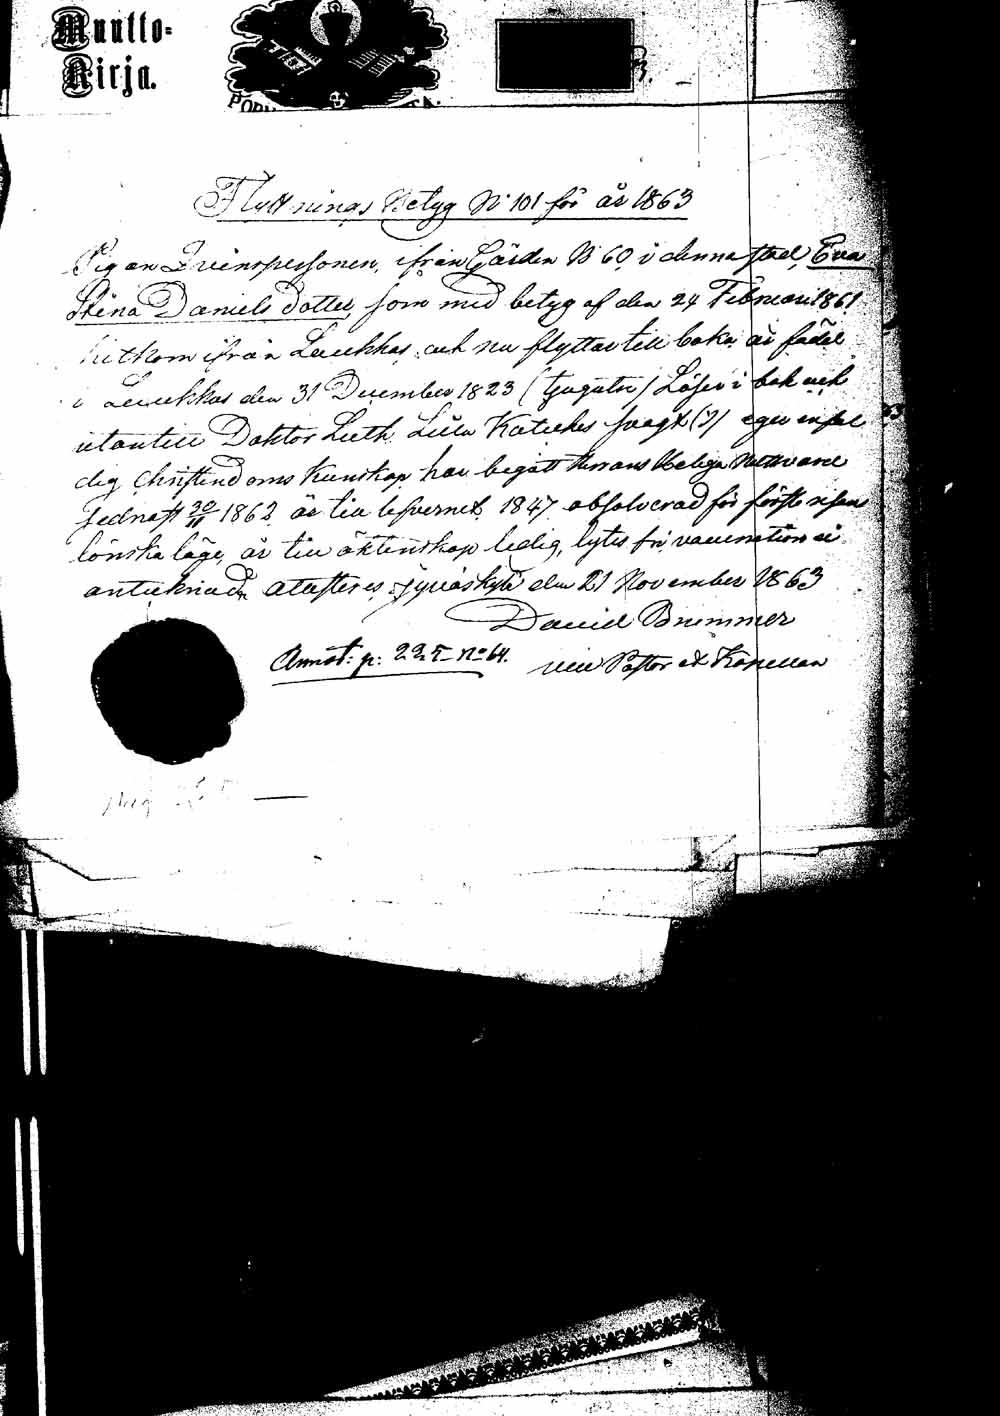 Muutto-
Kirja.
Flyttnings Betyg N 101 för år 1863
Pigan Qvinspersonen, ifrån Gården N 60 i denna stad, Eva
Stina Daniels dotter som med betyg af den 24 Februari 1861
hitkom ifrån Laukkas och nu flyttar till baka är född
i Laukkas den 31 December 1823 (tjugutre) Läser i bok och
utantill Doktor Luth. Lilla Kateches svagt (:/) eger enfal
dig Christendoms kunskap har begått Herrans Heliga Nattvard
sednast 30/11 1862 är till lefvernet 1847 absolverad för första resans
lönska läge, är till äktenskap ledig, lytes fri, vaccination ei
antecknad, attesteres Jyväskylä den 21 November 1863
David Brummer
Annot: p: 225 No 64.
vice Pastor